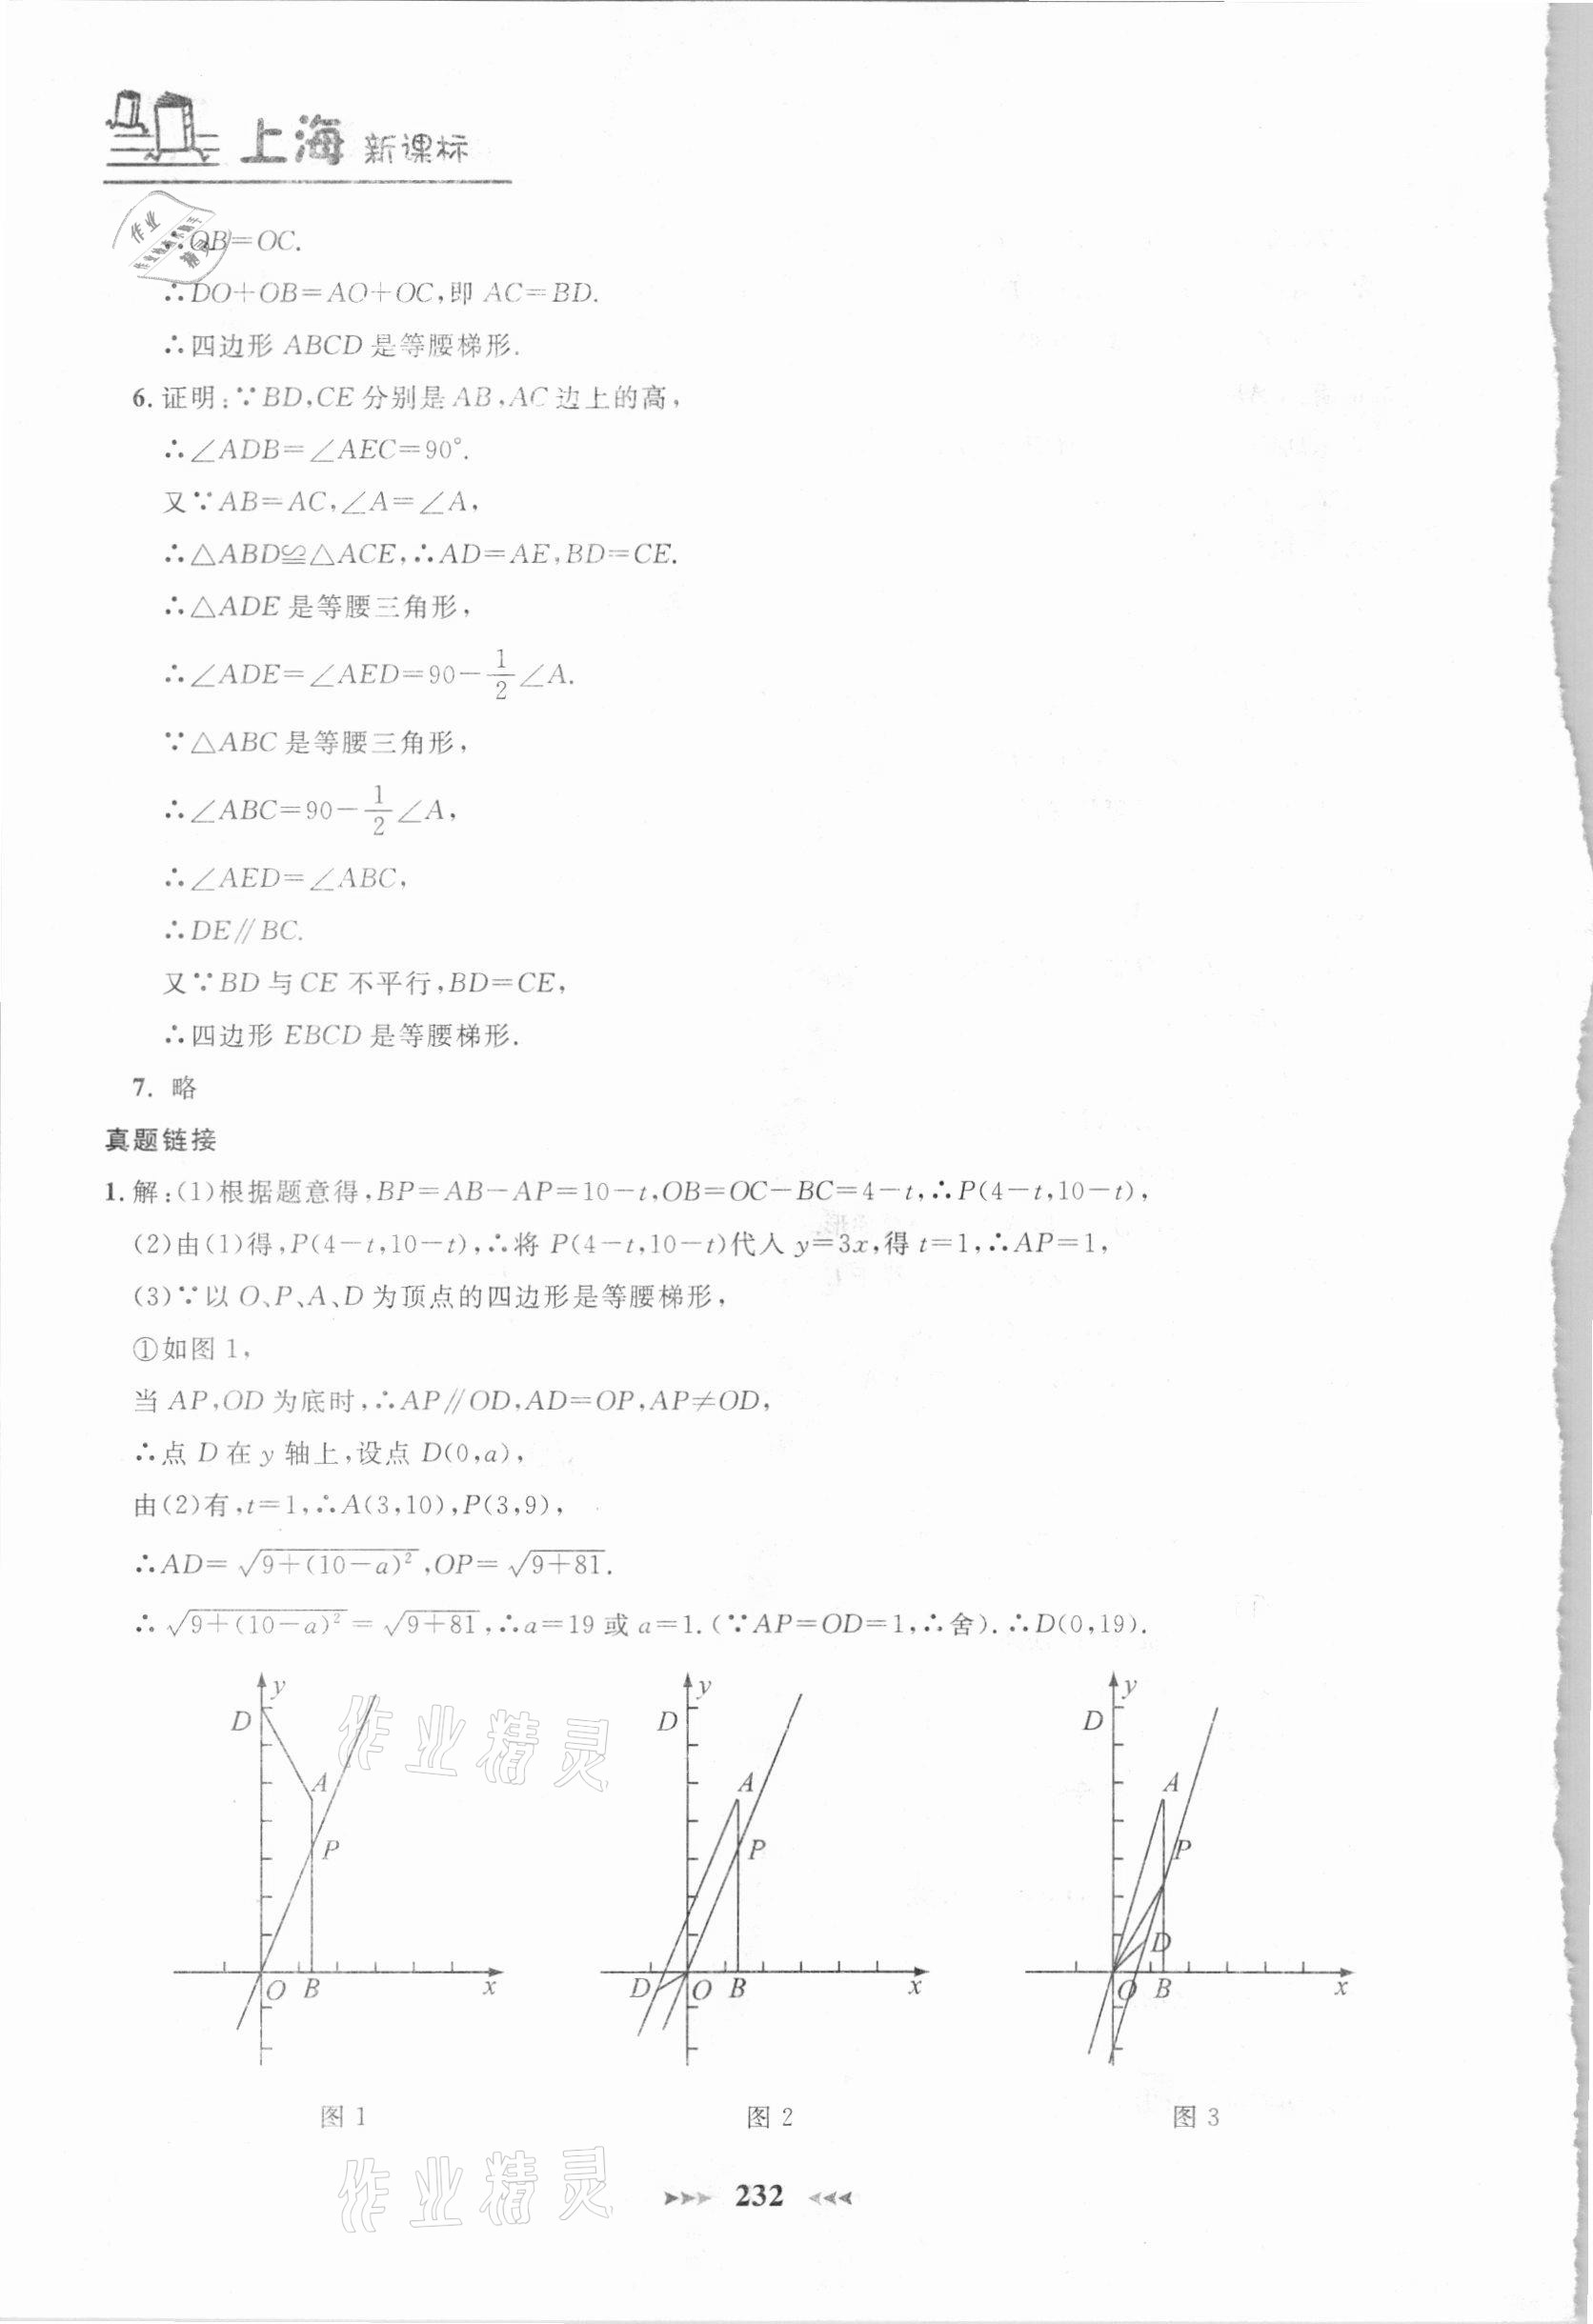 上海 新课标
∴OB=OC.
∴DO+OB=AO+OC,即 AC=BD.
∴四边形 ABCD 是等腰梯形.
6. 证明:∵BD,CE 分别是 AB,AC 边上的高,
∴∠ADB=∠AEC=90°.
又∵AB=AC,∠A=∠A,
∴△ABD≌△ACE,∴AD=AE,BD=CE.
∴△ADE 是等腰三角形,
∴∠ADE=∠AED=90-1/2∠A.
∵△ABC 是等腰三角形,
∴∠ABC=90-1/2∠A,
∴∠AED=∠ABC,
∴DE∥BC.
又∵BD 与 CE 不平行,BD=CE,
∴四边形 EBCD 是等腰梯形.
7. 略
真题链接
1. 解:(1)根据题意得,BP=AB-AP=10-t,OB=OC-BC=4-t,∴P(4-t,10-t),
(2)由(1)得,P(4-t,10-t),∴将 P(4-t,10-t)代入 y=3x,得 t=1,∴AP=1,
(3)∵以 O、P、A、D 为顶点的四边形是等腰梯形,
①如图 1,
当 AP,OD 为底时,∴AP∥OD,AD=OP,AP≠OD,
∴点 D 在 y 轴上,设点 D(0,a),
由(2)有,t=1,∴A(3,10),P(3,9),
∴AD=√(9+(10-a)²),OP=√(9+81).
∴√(9+(10-a)²)=√(9+81),∴a=19 或 a=1.(∵AP=OD=1,∴舍).∴D(0,19).
y D A P O B x
y D A P D O B x
y D A P D O B x
图 1
图 2
图 3
232
作业精灵
作业精灵
作业
精灵